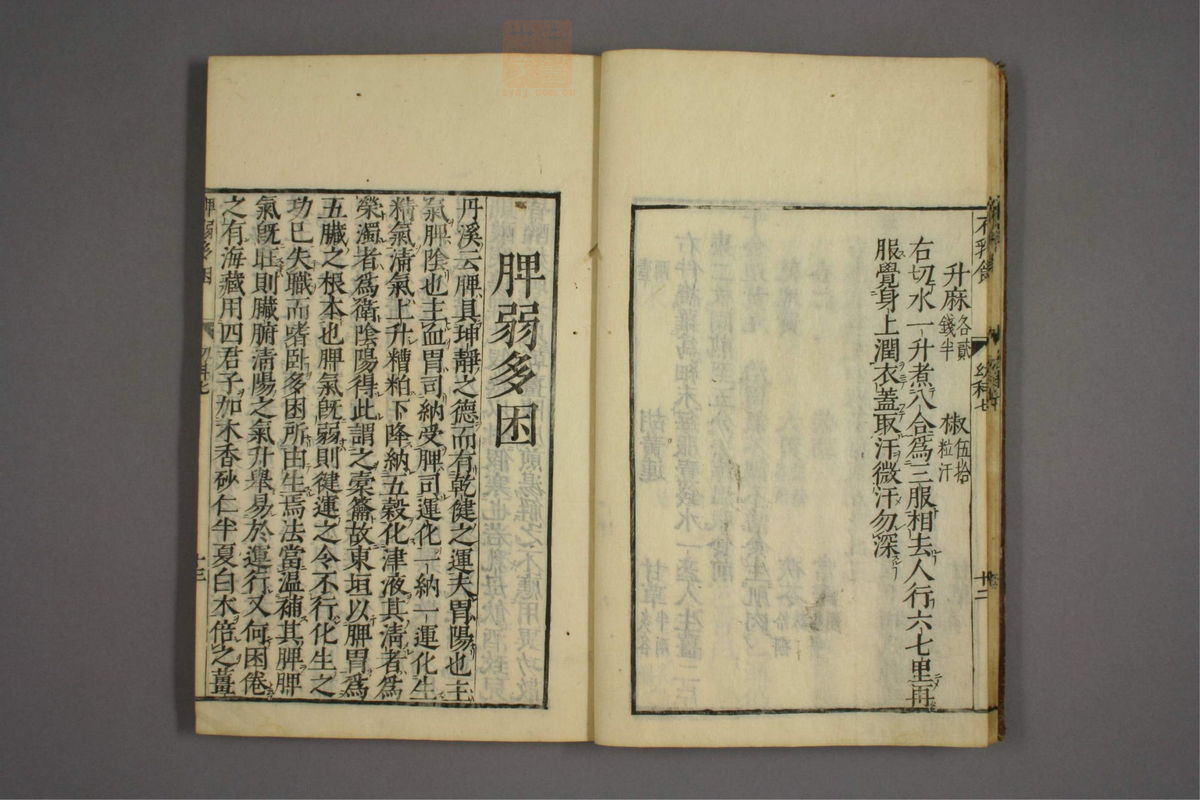 升麻各貳錢半 椒伍拾粒汗
右切水一升煮八合爲三服相去人行六七里再
服覺身上潤衣蓋取汗微汗勿深
幼科七
十二
脾弱多困
丹溪云脾具坤靜之德而有乾健之運夫胃陽也主
氣脾陰也主血胃司納受脾司運化一納一運化生
精氣清氣上升糟粕下降納五穀化津液其清者爲
榮濁者爲衛陰陽得此謂之橐籥故東垣以脾胃爲
五臟之根本也脾氣旣弱則健運之令不行化生之
功已失職而嗜卧多困所由生焉法當温補其脾脾
氣旣壯則臟腑清陽之氣升舉易於運行又何困倦
之有海藏用四君子加木香砂仁半夏白术倍之薑
脾弱多困
十三